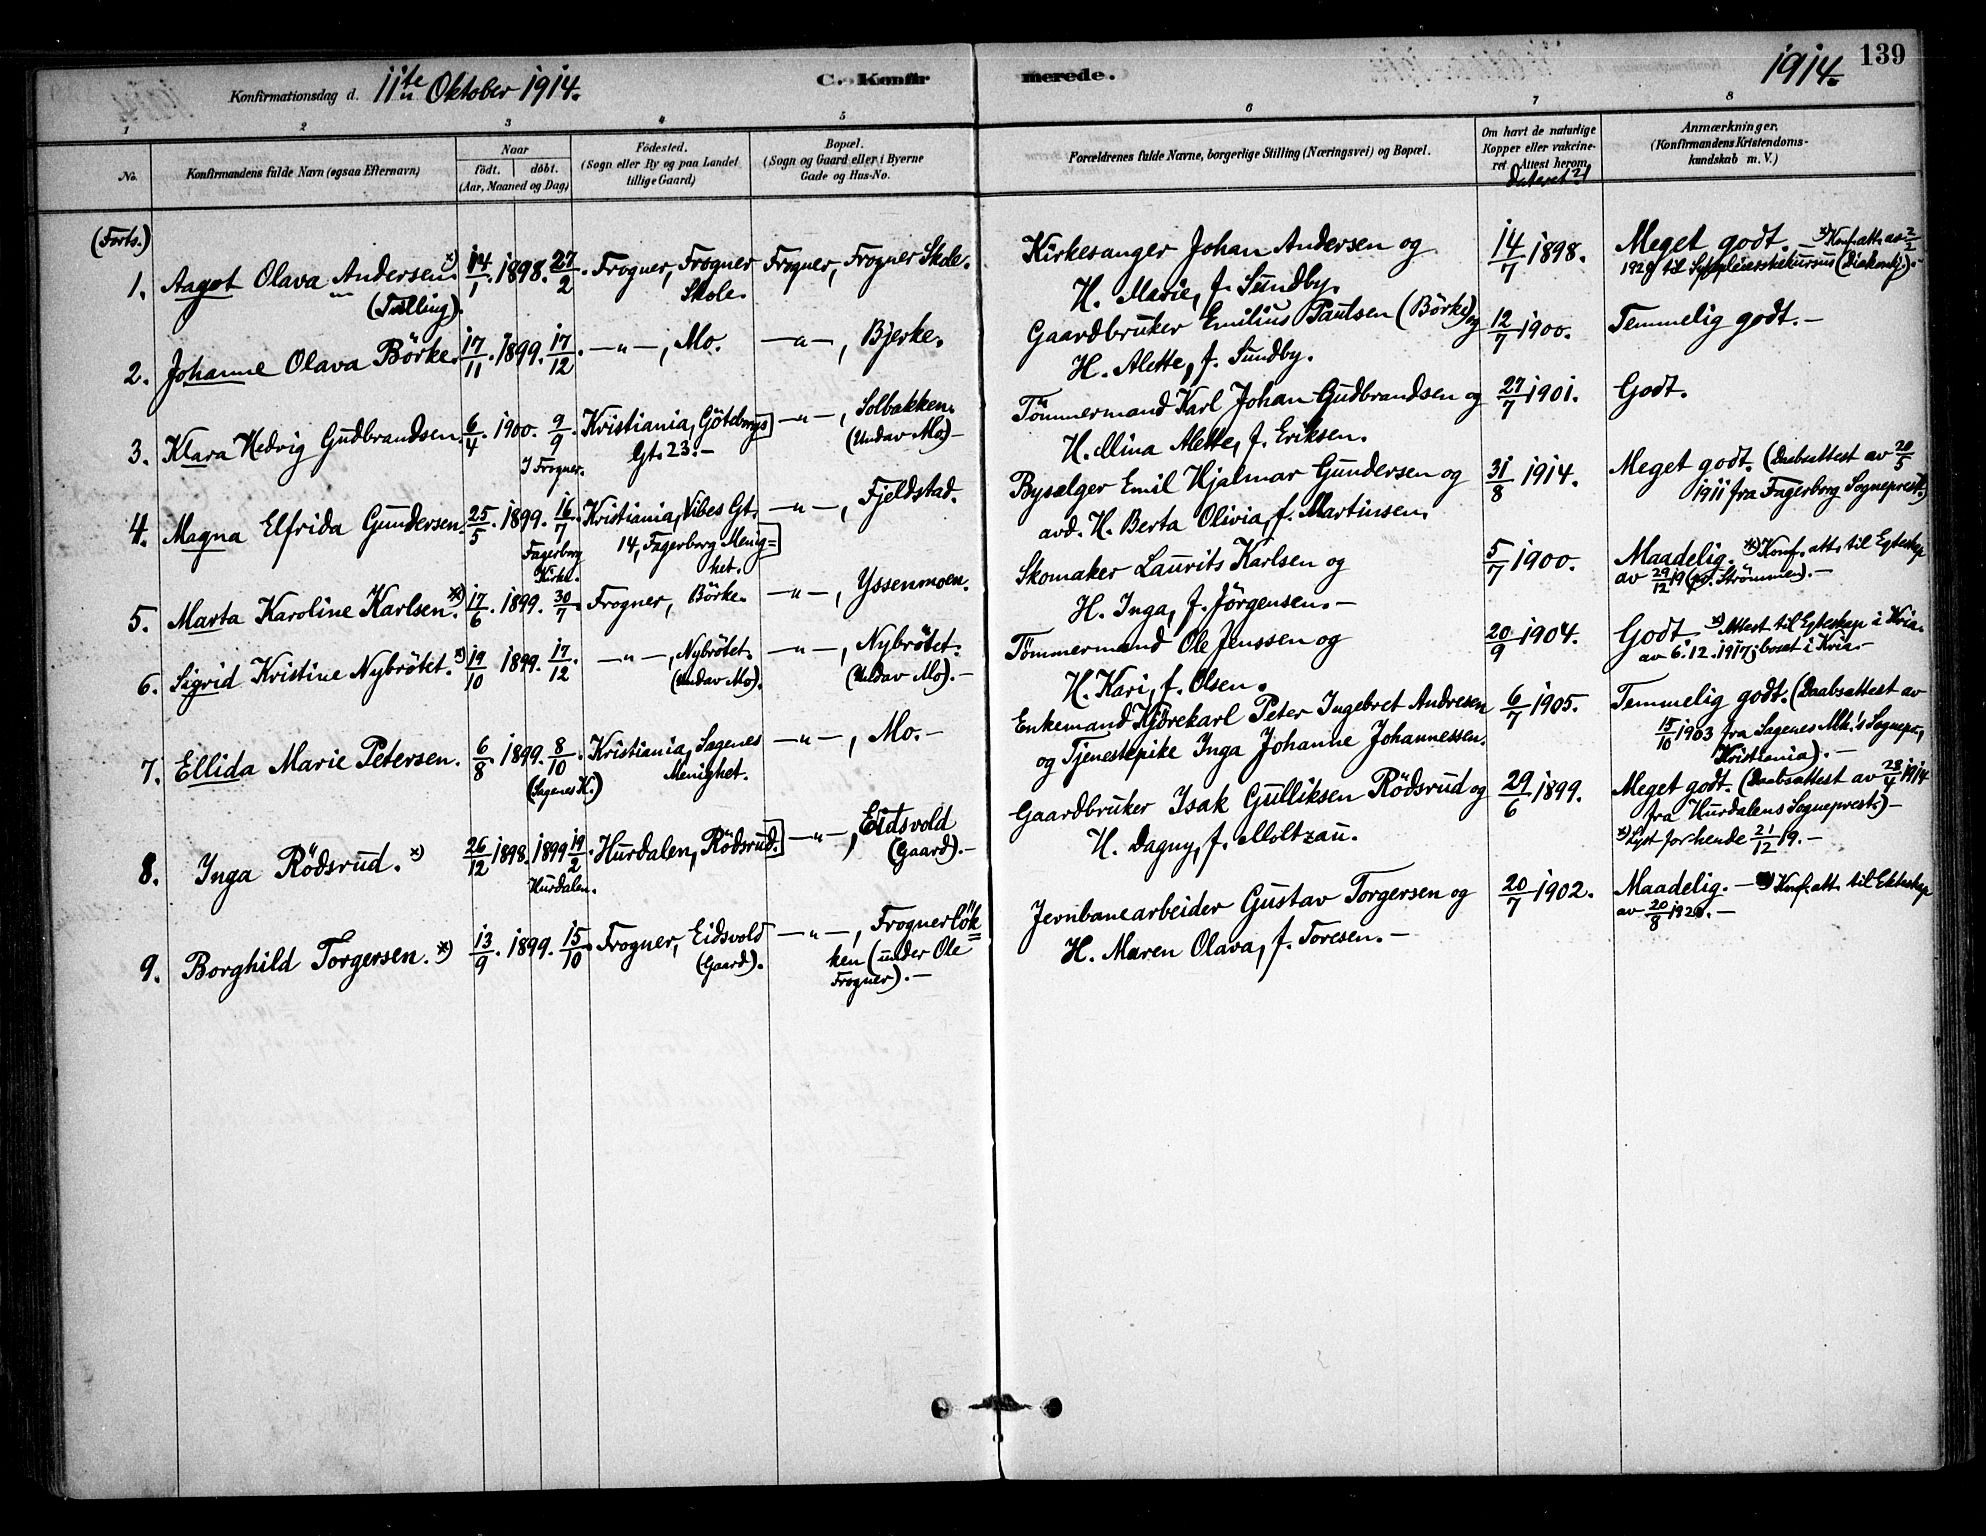 Konfirmationsdag d. 11te Oktober 1914.
C. Konfir
merede.
1914.
139
1
2
3
4
5
6
7
8
No.
Konfirmandens fulde Navn (ogsaa Efternavn)
Naar
födt. döbt.
(Aar, Maaned og Dag)
Födested.
(Sogn eller By og paa Landet
tillige Gaard)
Bopæl.
(Sogn og Gaard eller i Byerne
Gade og Hus-No.
Forældrenes fulde Navne, borgerlige Stilling (Næringsvei) og Bopæl.
Om havt de naturlige
Kopper eller vakcine-
ret. Attest herom,
dateret?
Anmærkninger.
(Konfirmandens Kristendoms-
kundskab m. V.)
(Forts.)
1. Aagot Olava Andersen.*) 14/1. 1898. 27/2. Frogner, Frogner Frogner, Frogner Skole.
(Tælling). Skole.
Kirkesanger Johan Andersen og 14/7 1898. Meget godt. *) Konf.att. av 2/2
H. Marie, f. Sundby. 1929 til Sykepleierskekursus (Diakonhj.).-
2. Johanne Olava Börke. 17/11. 1899. 17/12. -"-, Mo. -"-, Bjerke.
Gaardbruker Emilius Paulsen (Börke) og 12/7 1900. Temmelig godt.-
H. Alette, f. Sundby.
3. Klara Hedvig Gudbrandsen. 6/4. 1900. 9/9. Kristiania, Göteborgs] -"-, Solbakken.
I Frogner. Gt. 23.- (Und. av Mo)-
Tömmermand Karl Johan Gudbrandsen og 27/7 1901. Godt.
H. Mina Alette, f. Eriksen.
4. Magna Elfrida Gundersen. 25/5. 1899. 16/7. Kristiania, Vibes Gt. -"-, Fjeldstad.
Fagerborg 14, Fagerborg Menig=]
Kirke. het.
Bysælger Emil Hjalmar Gundersen og 31/8 1914. Meget godt. (Daabsattest av 20/5
avd. H. Berta Olivia, f. Martinsen. 1911 fra Fagerborg Sogneprest.)
5. Marta Karoline Karlsen.*) 17/6. 1899. 30/7. Frogner, Börke. -"-, Yssenmoen.
Skomaker Laurits Karlsen og 5/7 1900. Maadelig. *) Konf.att. til Egteskap
H. Inga, f. Jörgensen.- av 29/12 19 (Strømmen).-
6. Sigrid Kristine Nybrötet.*) 19/10. 1899. 17/12. -"-, Nybrötet. -"-, Nybrötet.
(Und av Mo). (Und av Mo).-
Tömmermand Ole Jenssen og 20/9 1904. Godt. *) Attest til Egteskap i Kria.
H. Kari, f. Olsen. av 6.12.1917; boset i Kria.-
7. Ellida Marie Petersen. 6/8. 1899. 8/10. Kristiania, Sagenes -"-, Mo.-
(Sagenes K.) Menighet.
Enkemand Kjörekarl Peter Ingebret Andresen 6/7 1905. Temmelig godt. (Daabsattest av
og Tjenestepike Inga Johanne Johannessen. 15/10 1903 fra Sagenes Mk.'s Sognepr.,
Kristiania).-
8. Inga Rödsrud.*) 26/12 1898. 1899 19/2. Hurdalen, Rödsrud.] -"-, Eidsvold
Hurdalen. (Gaard).-
Gaardbruker Isak Gulliksen Rödsrud og 29/6 1899. Meget godt. (Daabsattest av 28/4 1914
H. Dagny, f. Moltzau. fra Hurdalens Sogneprest.)-
*) Lyst for hende 21/12 19.-
9. Borghild Torgersen.*) 13/9. 1899. 15/10. Frogner, Eidsvold -"-, Frognerlök=
(Gaard). ken (under Ole
Frogner).-
Jernbanearbeider Gustav Torgersen og 20/7 1902. Maadelig.- *) Konf.att. til Ekteskap
H. Maren Olava, f. Toresen.- av 20/8 1920.-